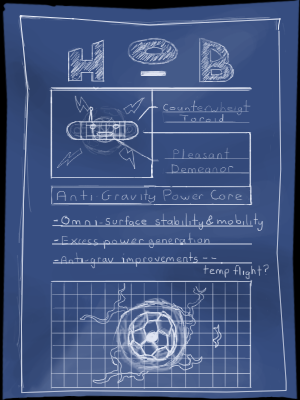 HOB
Counterweight
Toroid
Pleasant
Demeanor
Anti Gravity Power Core
- Omni-surface stability & mobility
- Excess power generation
- Anti-grav improvements --
temp flight?